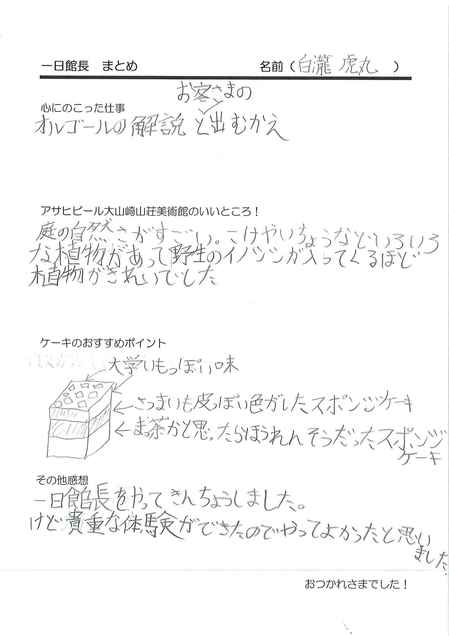 一日館長　まとめ　名前（白瀧 虎丸）
心にのこった仕事
お客さまの
オルゴールの解説と出むかえ
アサヒビール大山崎山荘美術館のいいところ！
庭の自然さがすごい。こけやいちょうなどいろいろ
な植物があって野生のイノシシが入ってくるほど
植物がきれいでした
ケーキのおすすめポイント
大学いもっぽい味
さつまいも皮っぽい色がしたスポンジケーキ
まっ茶かと思ったらほうれんそうだったスポンジ
ケーキ
その他感想
一日館長をやってきんちょうしました。
けど貴重な体験ができたのでやってよかったと思い
ました。
おつかれさまでした！